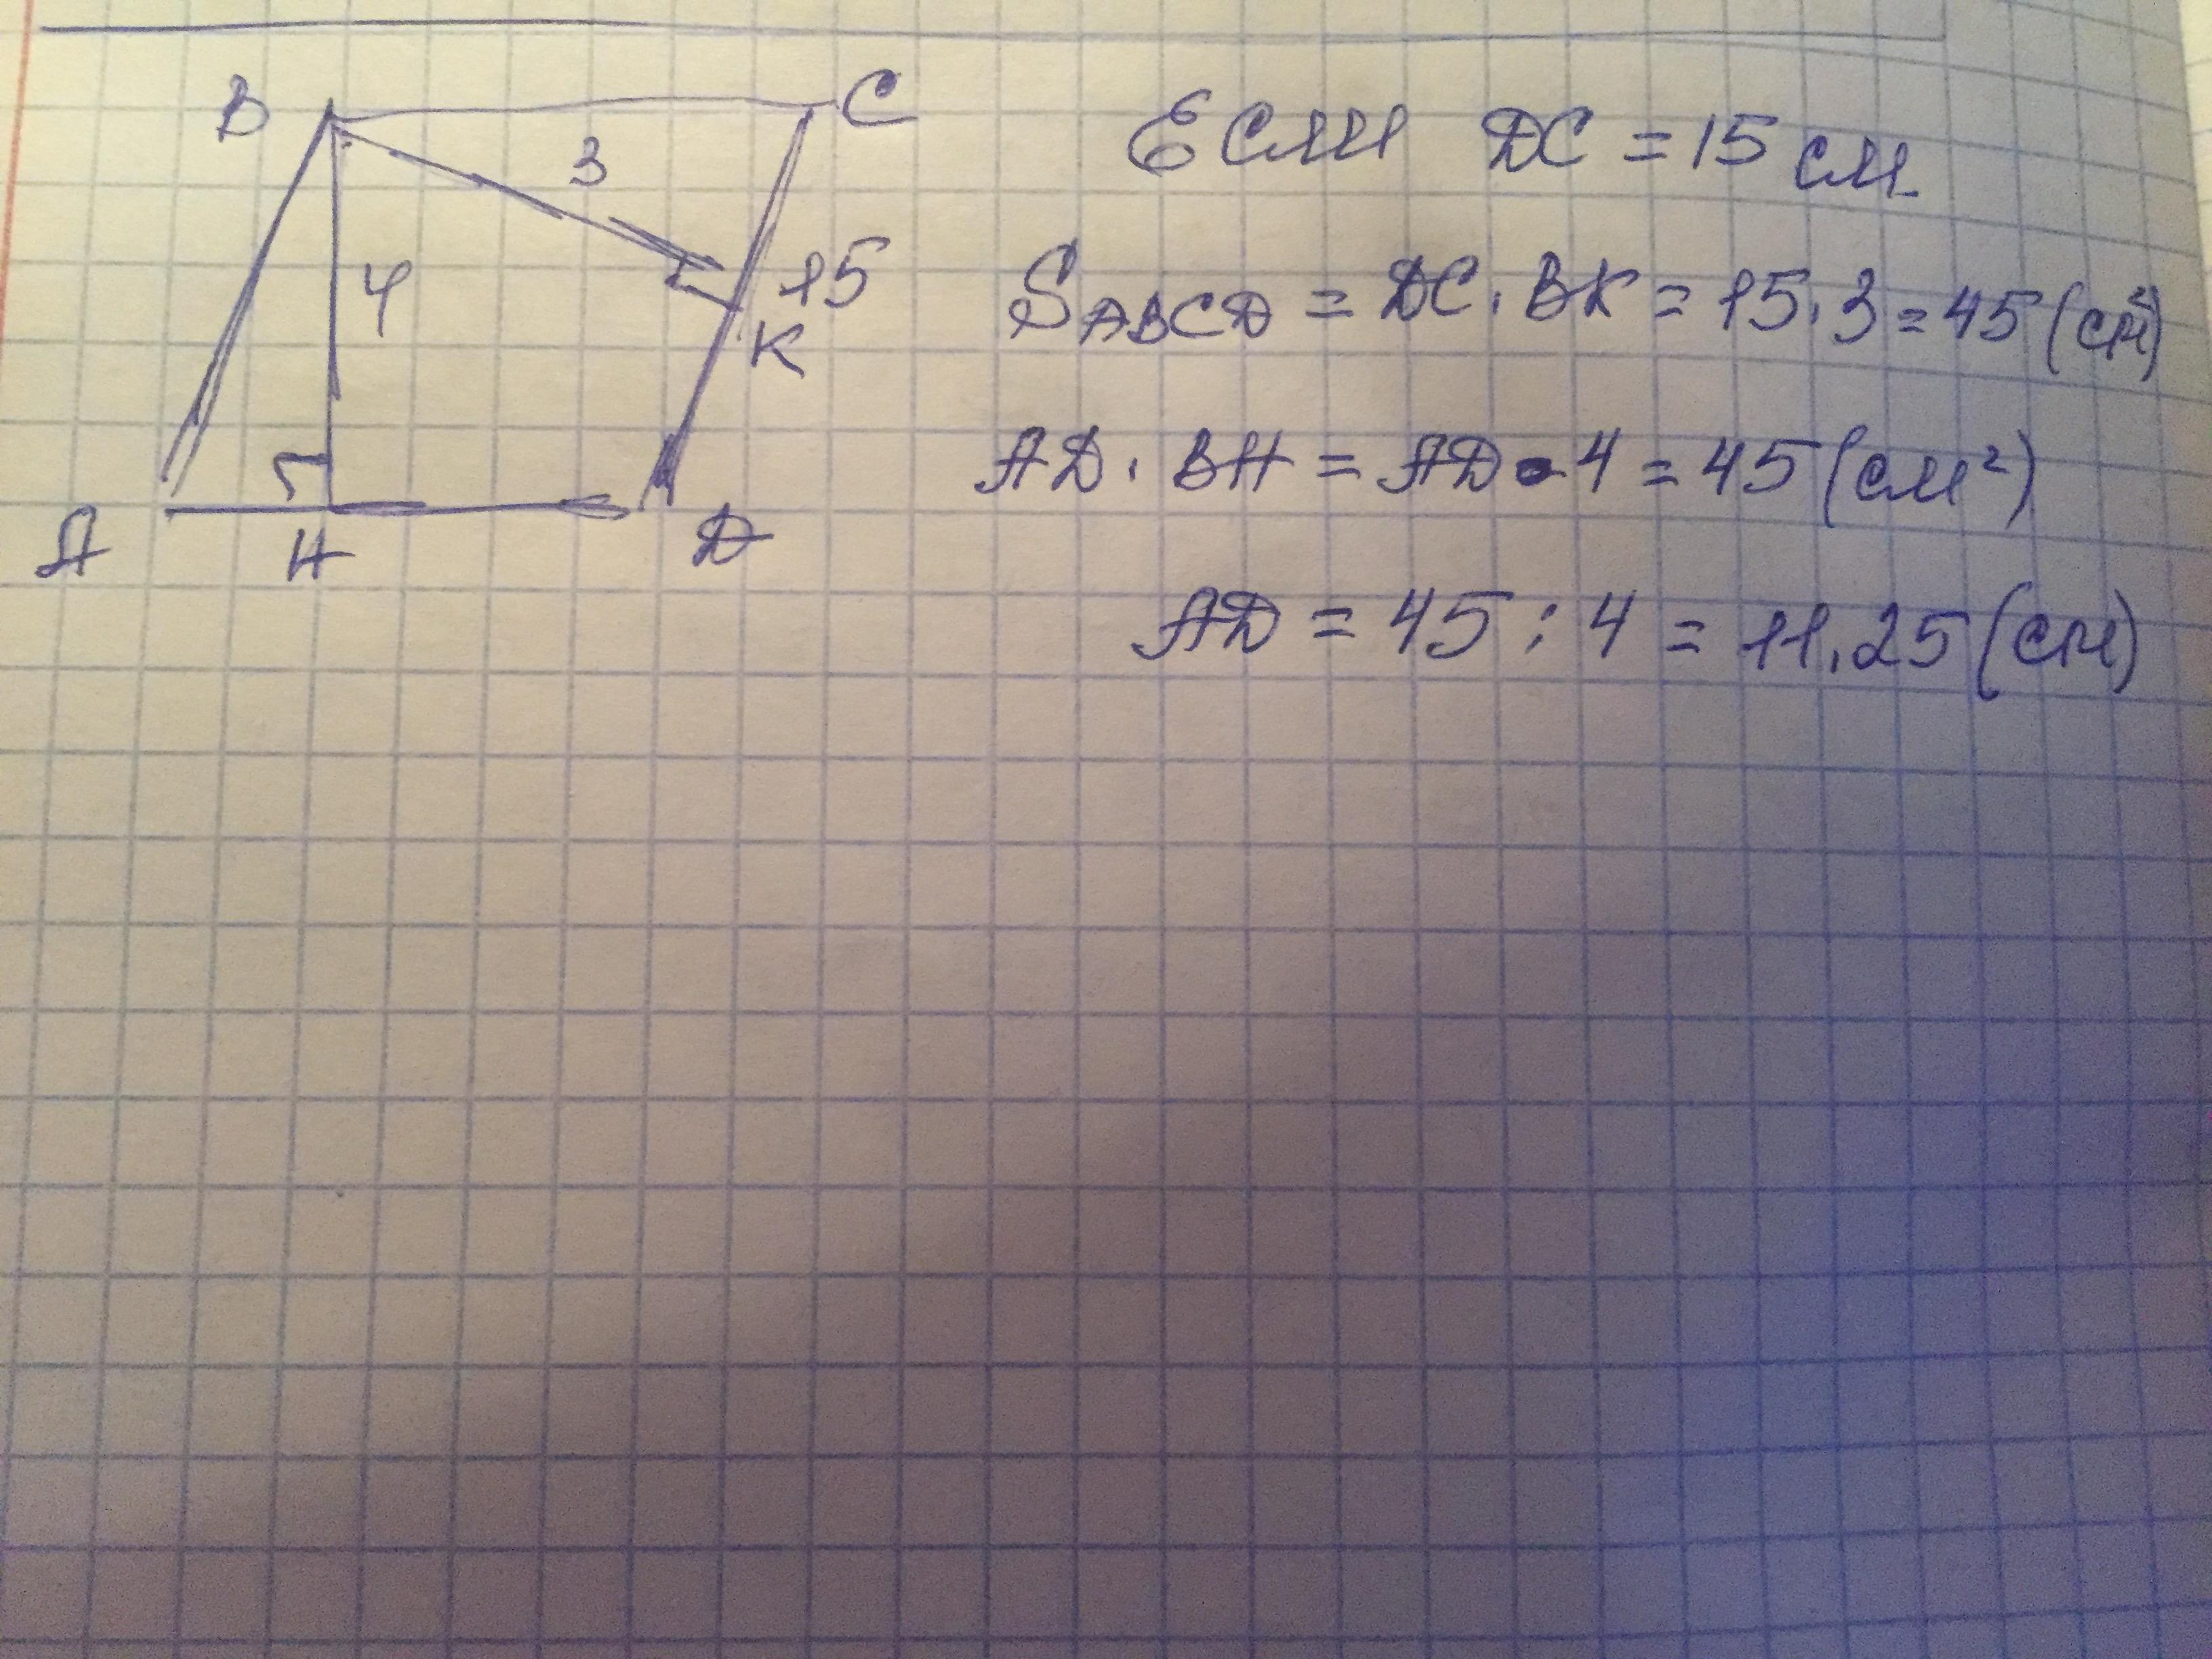 B
C
3
4
15
K
A
H
D
Если DC = 15 см
SABCD = DC · BK = 15 · 3 = 45 (см²)
AD · BH = AD · 4 = 45 (см²)
AD = 45 : 4 = 11,25 (см)